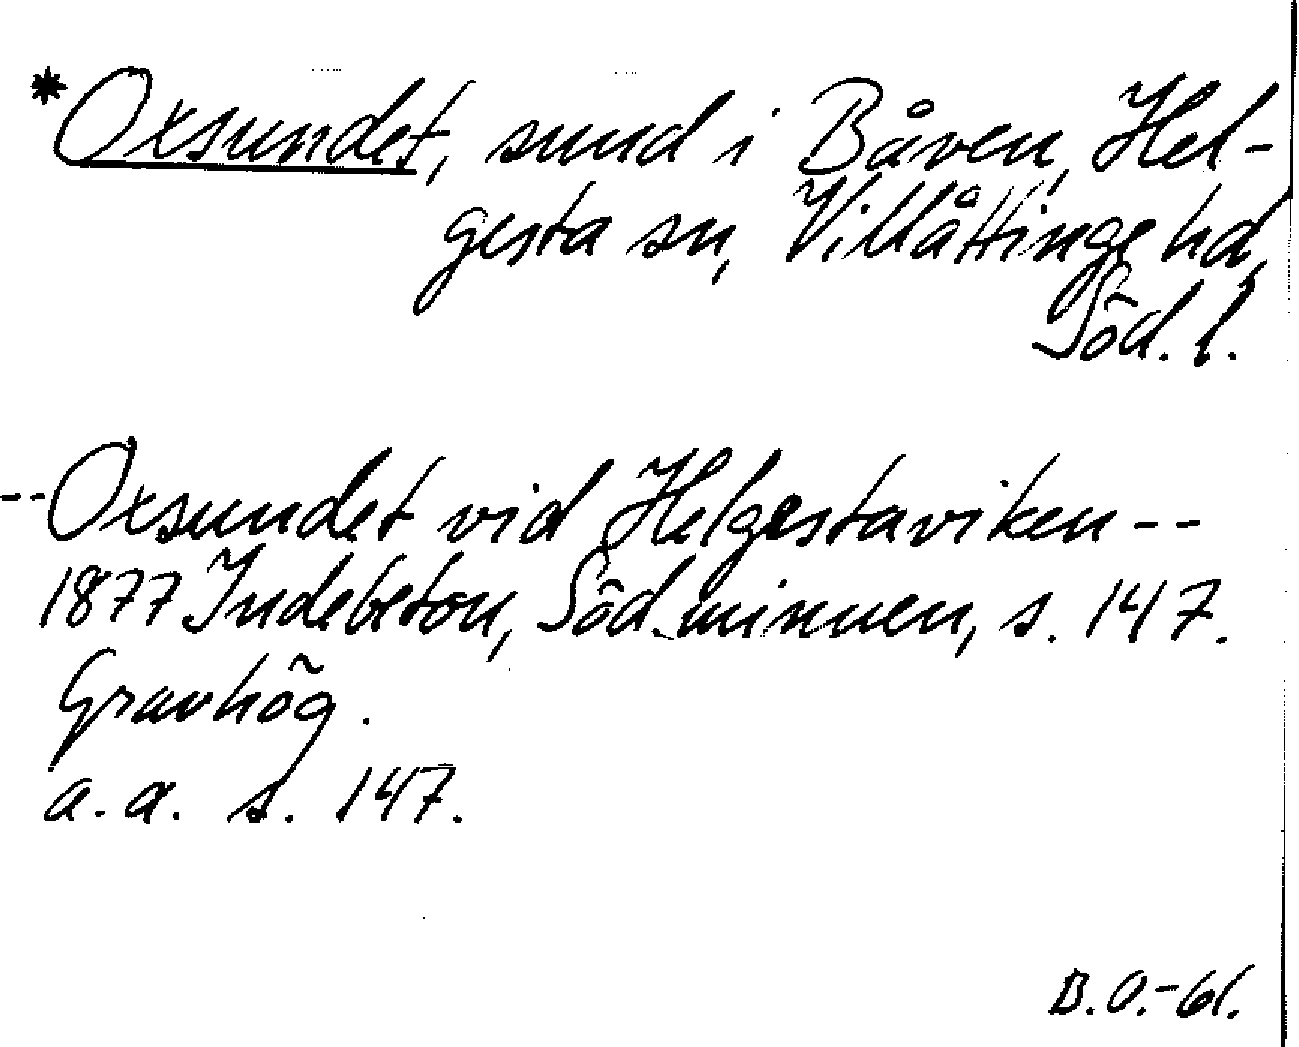 *Oxsundet, sund i Båven, Hel-
gesta sn, Villåttinge hd,
Söd. l.
--Oxsundet vid Helgestaviken--
1877 Indebetou, Söd. minnen, s. 147.
Gravhög.
a. a. s. 147.
B.O.-61.